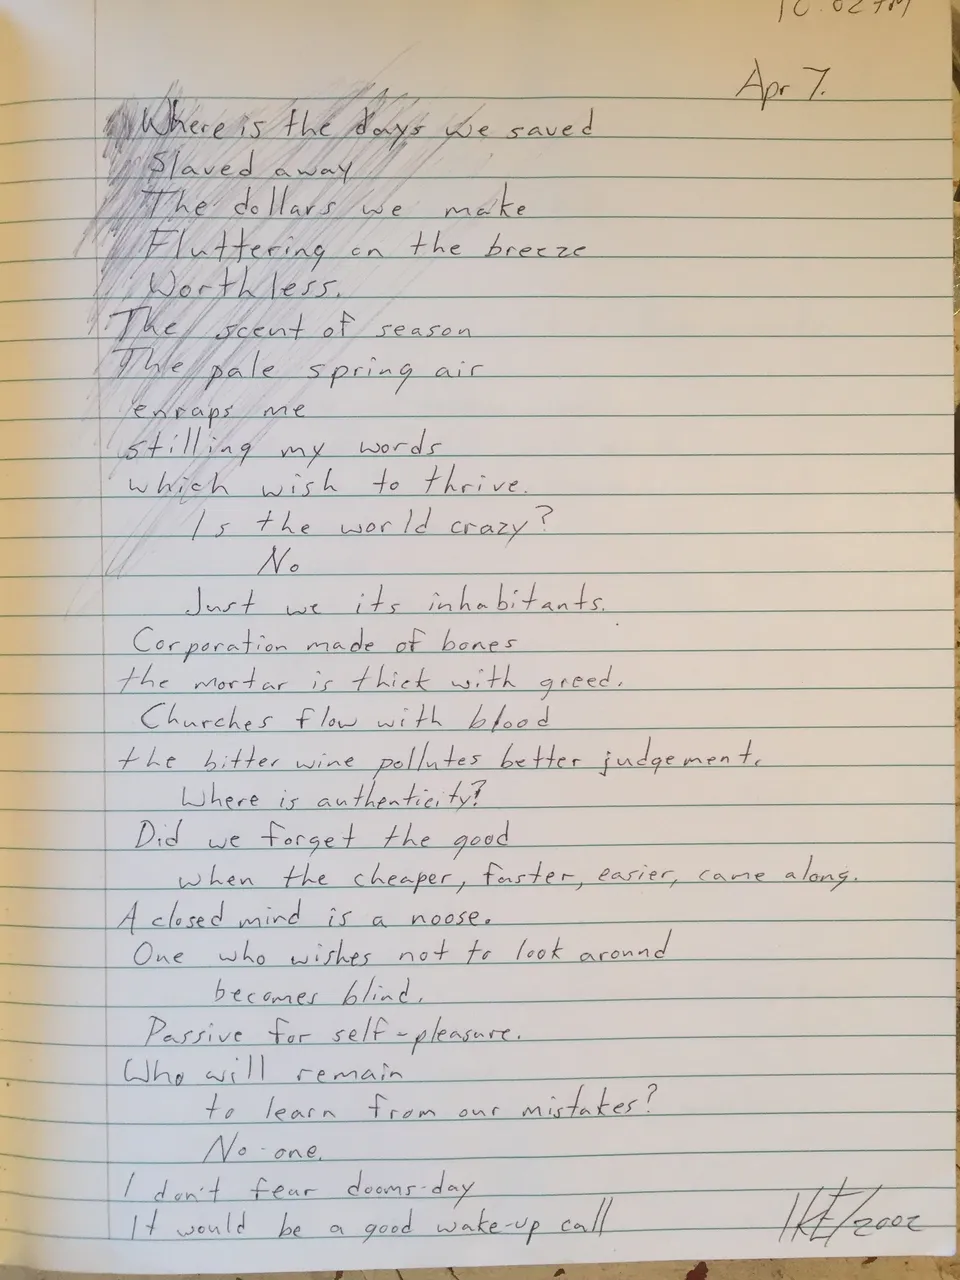 Apr 7.
Where is the days we saved
Slaved away
The dollars we make
Fluttering on the breeze
Worthless.
The scent of season
The pale spring air
enraps me
stilling my words
which wish to thrive.
Is the world crazy?
No
Just we its inhabitants.
Corporation made of bones
the mortar is thick with greed.
Churches flow with blood
the bitter wine pollutes better judgement.
Where is authenticity?
Did we forget the good
when the cheaper, faster, easier, came along.
A closed mind is a noose.
One who wishes not to look around
becomes blind.
Passive for self-pleasure.
Who will remain
to learn from our mistakes?
No-one.
I don't fear dooms-day
It would be a good wake-up call
2002